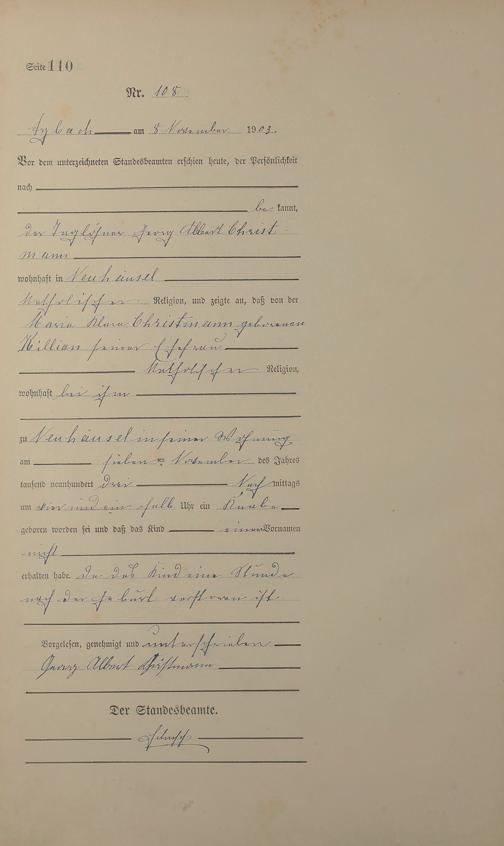 Seite 110
Nr. 108
am 8 November 1903.
Vor dem unterzeichneten Standesbeamten erschien heute, der Persönlichkeit
nach
be kannt,
der Taglöhner Georg Albert Christ
mann
wohnhaft in Neuhäusel
katholischer Religion, und zeigte an, daß von der
Maria Klara Christmann geborenen
Killian seiner Ehefrau
katholischer Religion,
wohnhaft bei ihm
zu Neuhäusel in seiner Wohnung
am sieben ten November des Jahres
tausend neunhundert drei Nach mittags
um vier und ein halb Uhr ein Knabe
geboren worden sei und daß das Kind einen Vornamen
nicht
erhalten habe. Da das Kind eine Stunde
nach der Geburt verstorben ist.
Vorgelesen, genehmigt und unterschrieben
Georg Albert Christmann
Der Standesbeamte.